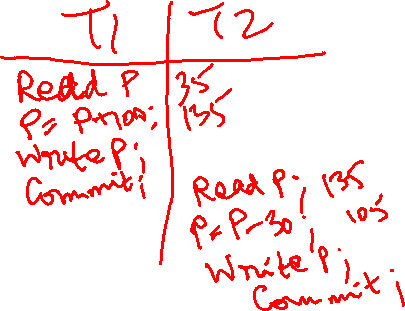 T1 T2
Read P 35
P = P+100; 135
Write P;
Commit;
Read P; 135
P = P-30; 105
Write P;
Commit;